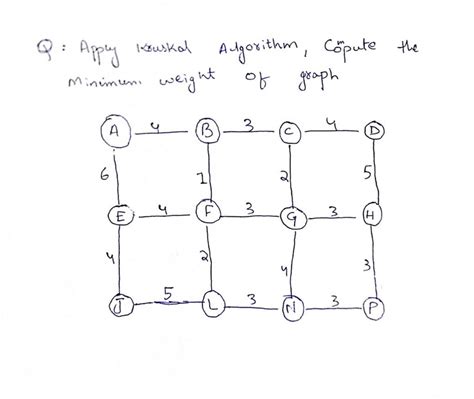 Q : Apply Kruskal Algorithm, Compute the
Minimum weight of graph
A 4 B 3 C 4 D
6 1 2 5
E 4 F 3 G 3 H
4 2 4 3
J 5 L 3 N 3 P